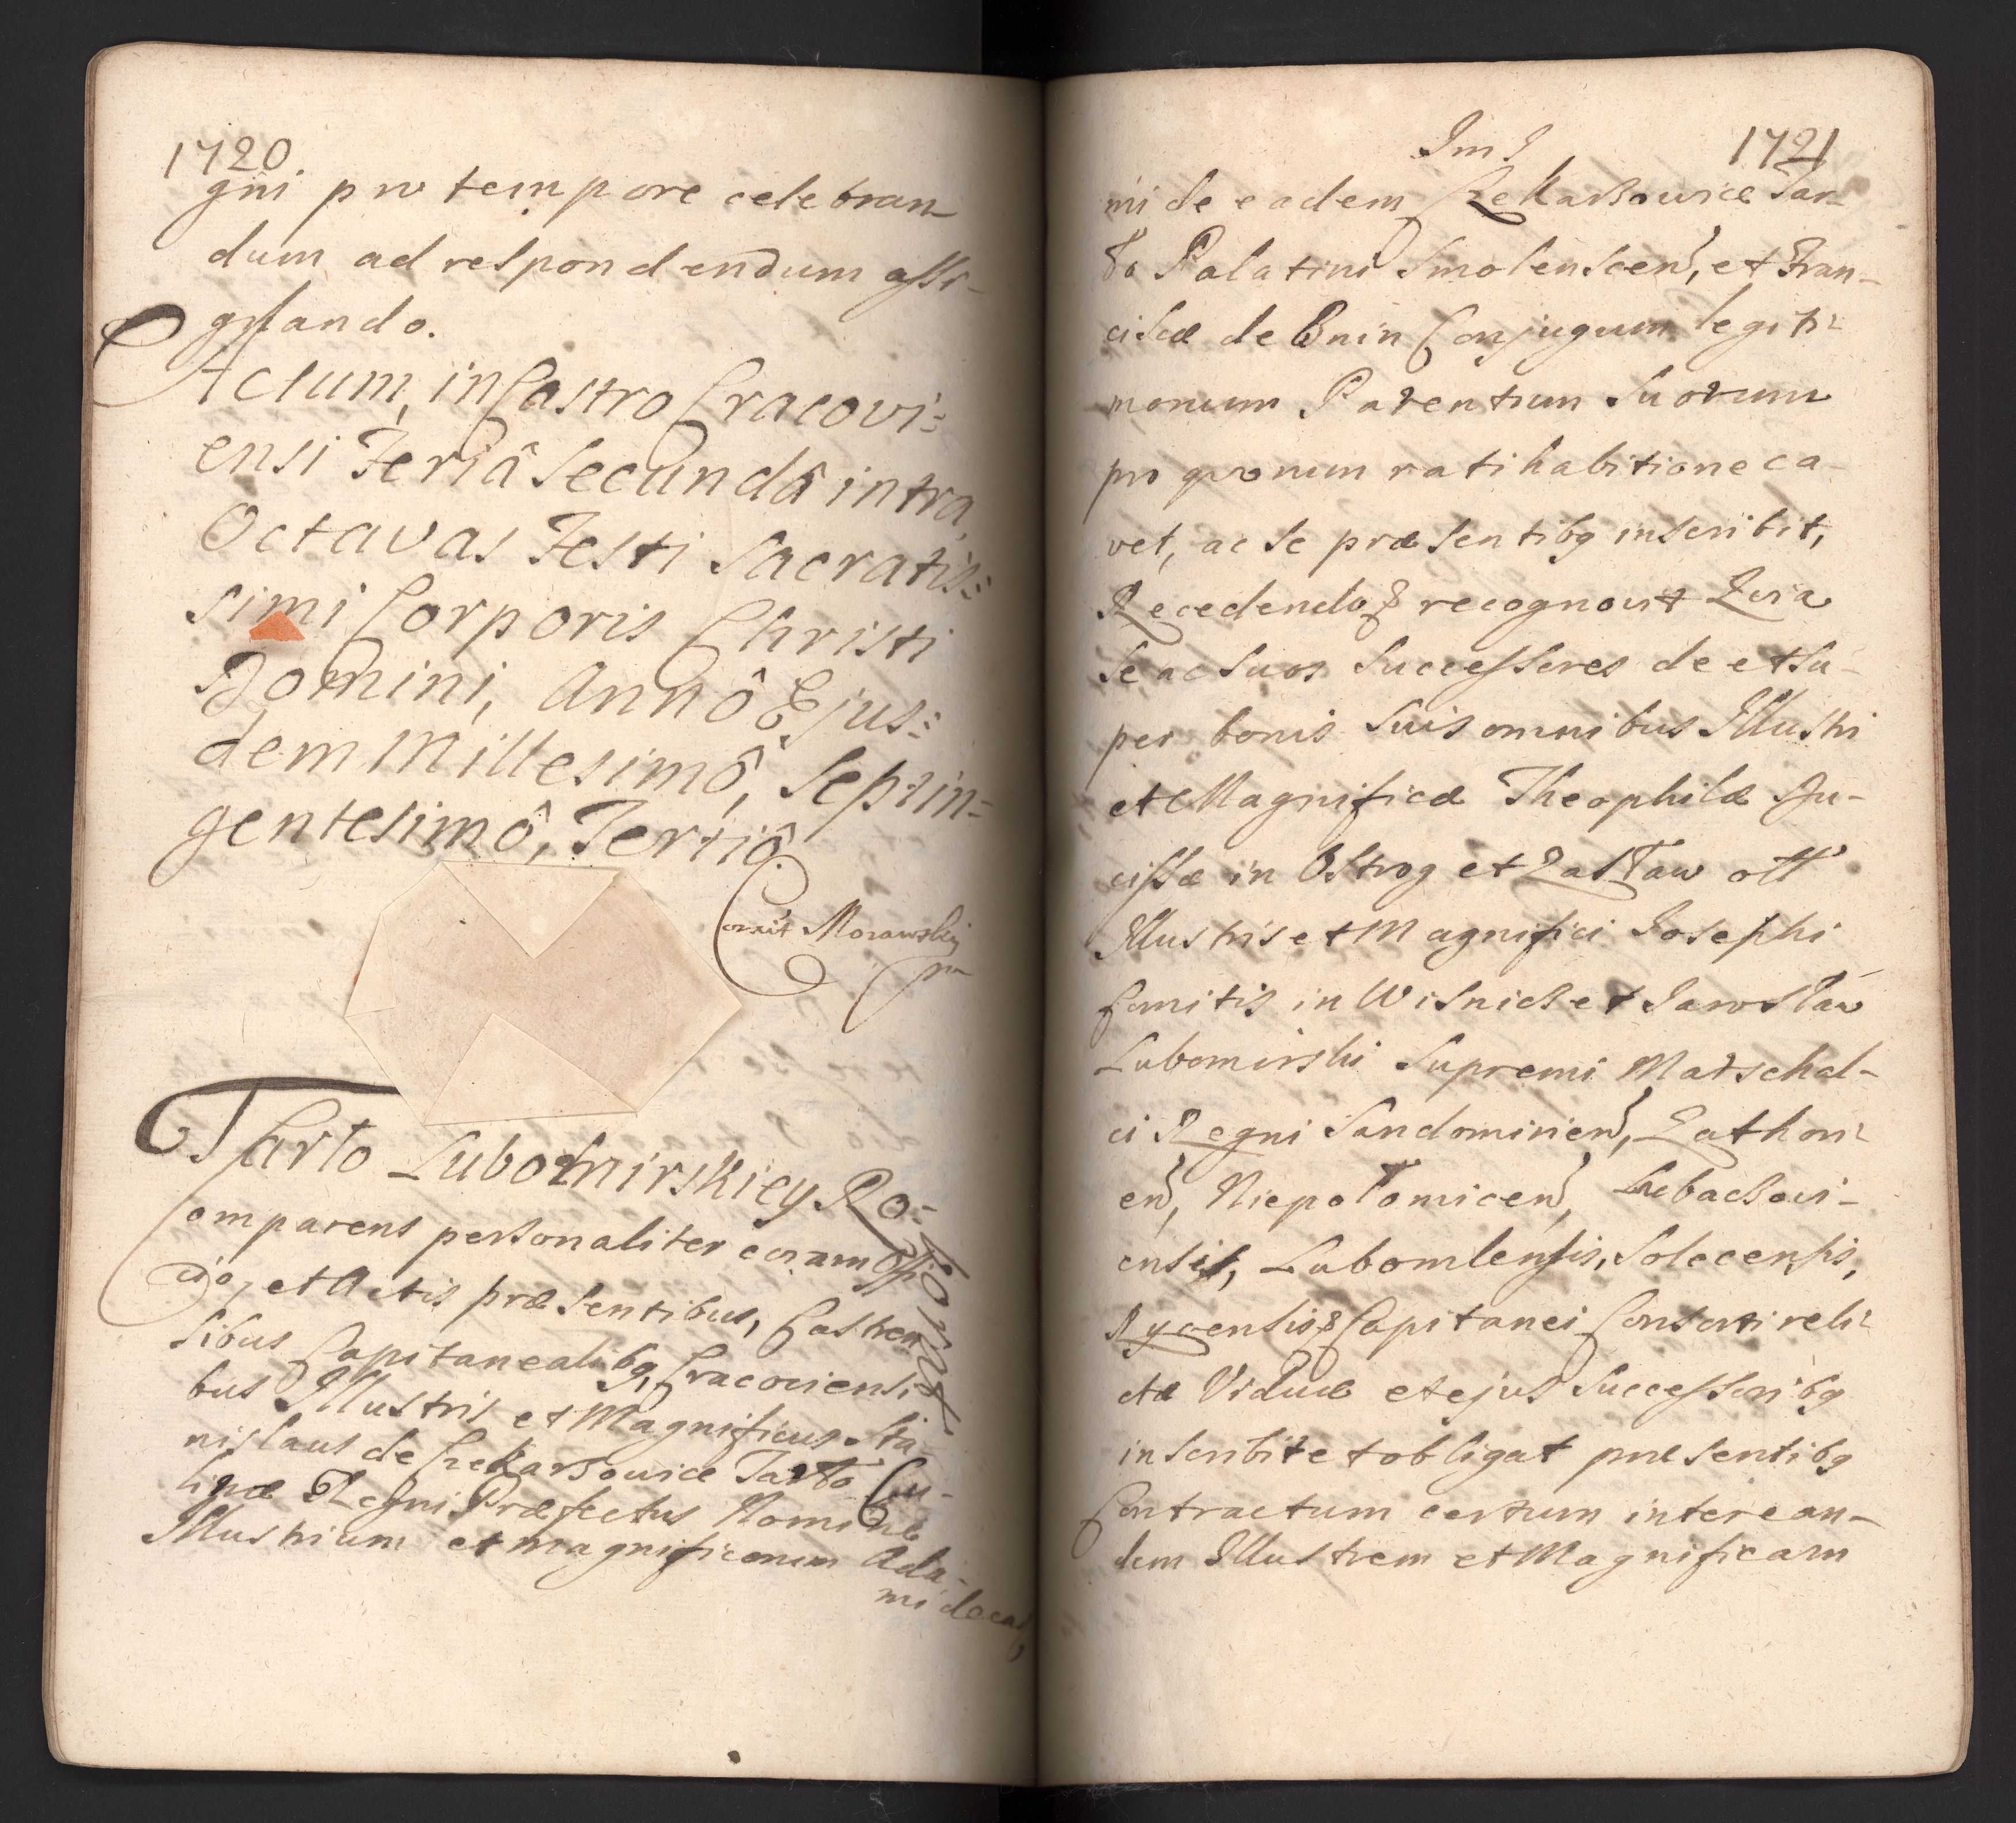 1720
gni pro tempore celebran
dum ad respondendum assi-
gnando.
Actum, in Castro Cracovi:
ensi Feriâ Secundâ intra
Octavas Festi Sacratis:
simi Corporis Christi
Domini, Annô Ejus:
dem Millesimô, Septin=
gentesimô, Tertiô.
Corrit Morawskij
mp
Tarło Lubomirskiey Ro:
borat
Comparens personaliter coram Offi
cio, et Actis præsentibus, Castren
sibus Capitanealibq, Cracoviensi
bus Illustris et Magnificus Sta-
nislaus de Czekarzowice Tarło Cu-
linæ Regni Præfectus Nomine
Illustrium et magnificorum Ada-
mi de ead,
Im 1721
mi de eadem Czekarzowice Tar-
ło Palatini Smolenscen, et Fran-
ciscæ de Bnin Conjugum legiti-
morum Parentum Suorum
pro quorum ratihabitione ca-
vet, ac se præsentibq inscribit,
Recedendo & recognovit Quia
Se ac Suos Successores de et Su-
per bonis Suis omnibus Illustri
et Magnificæ Theophilæ Du-
cissæ in Ostrog et Zasław olł
Illustris et Magnifici Josephi
Comitis in Wisnicz et Jarosław
Lubomirski Supremi Marschal-
ci Regni Sandomirien, Zathori-
en, Niepołomicen, Lubaczovi-
ensis, Lubomlensis, Solecensis,
Rycensis & Capitanei Consorti reli-
ctæ Viduæ et ejus Successoribq
inscribit et obligat præsentibq
Contractum certum inter ean-
dem Illustrem et Magnificam